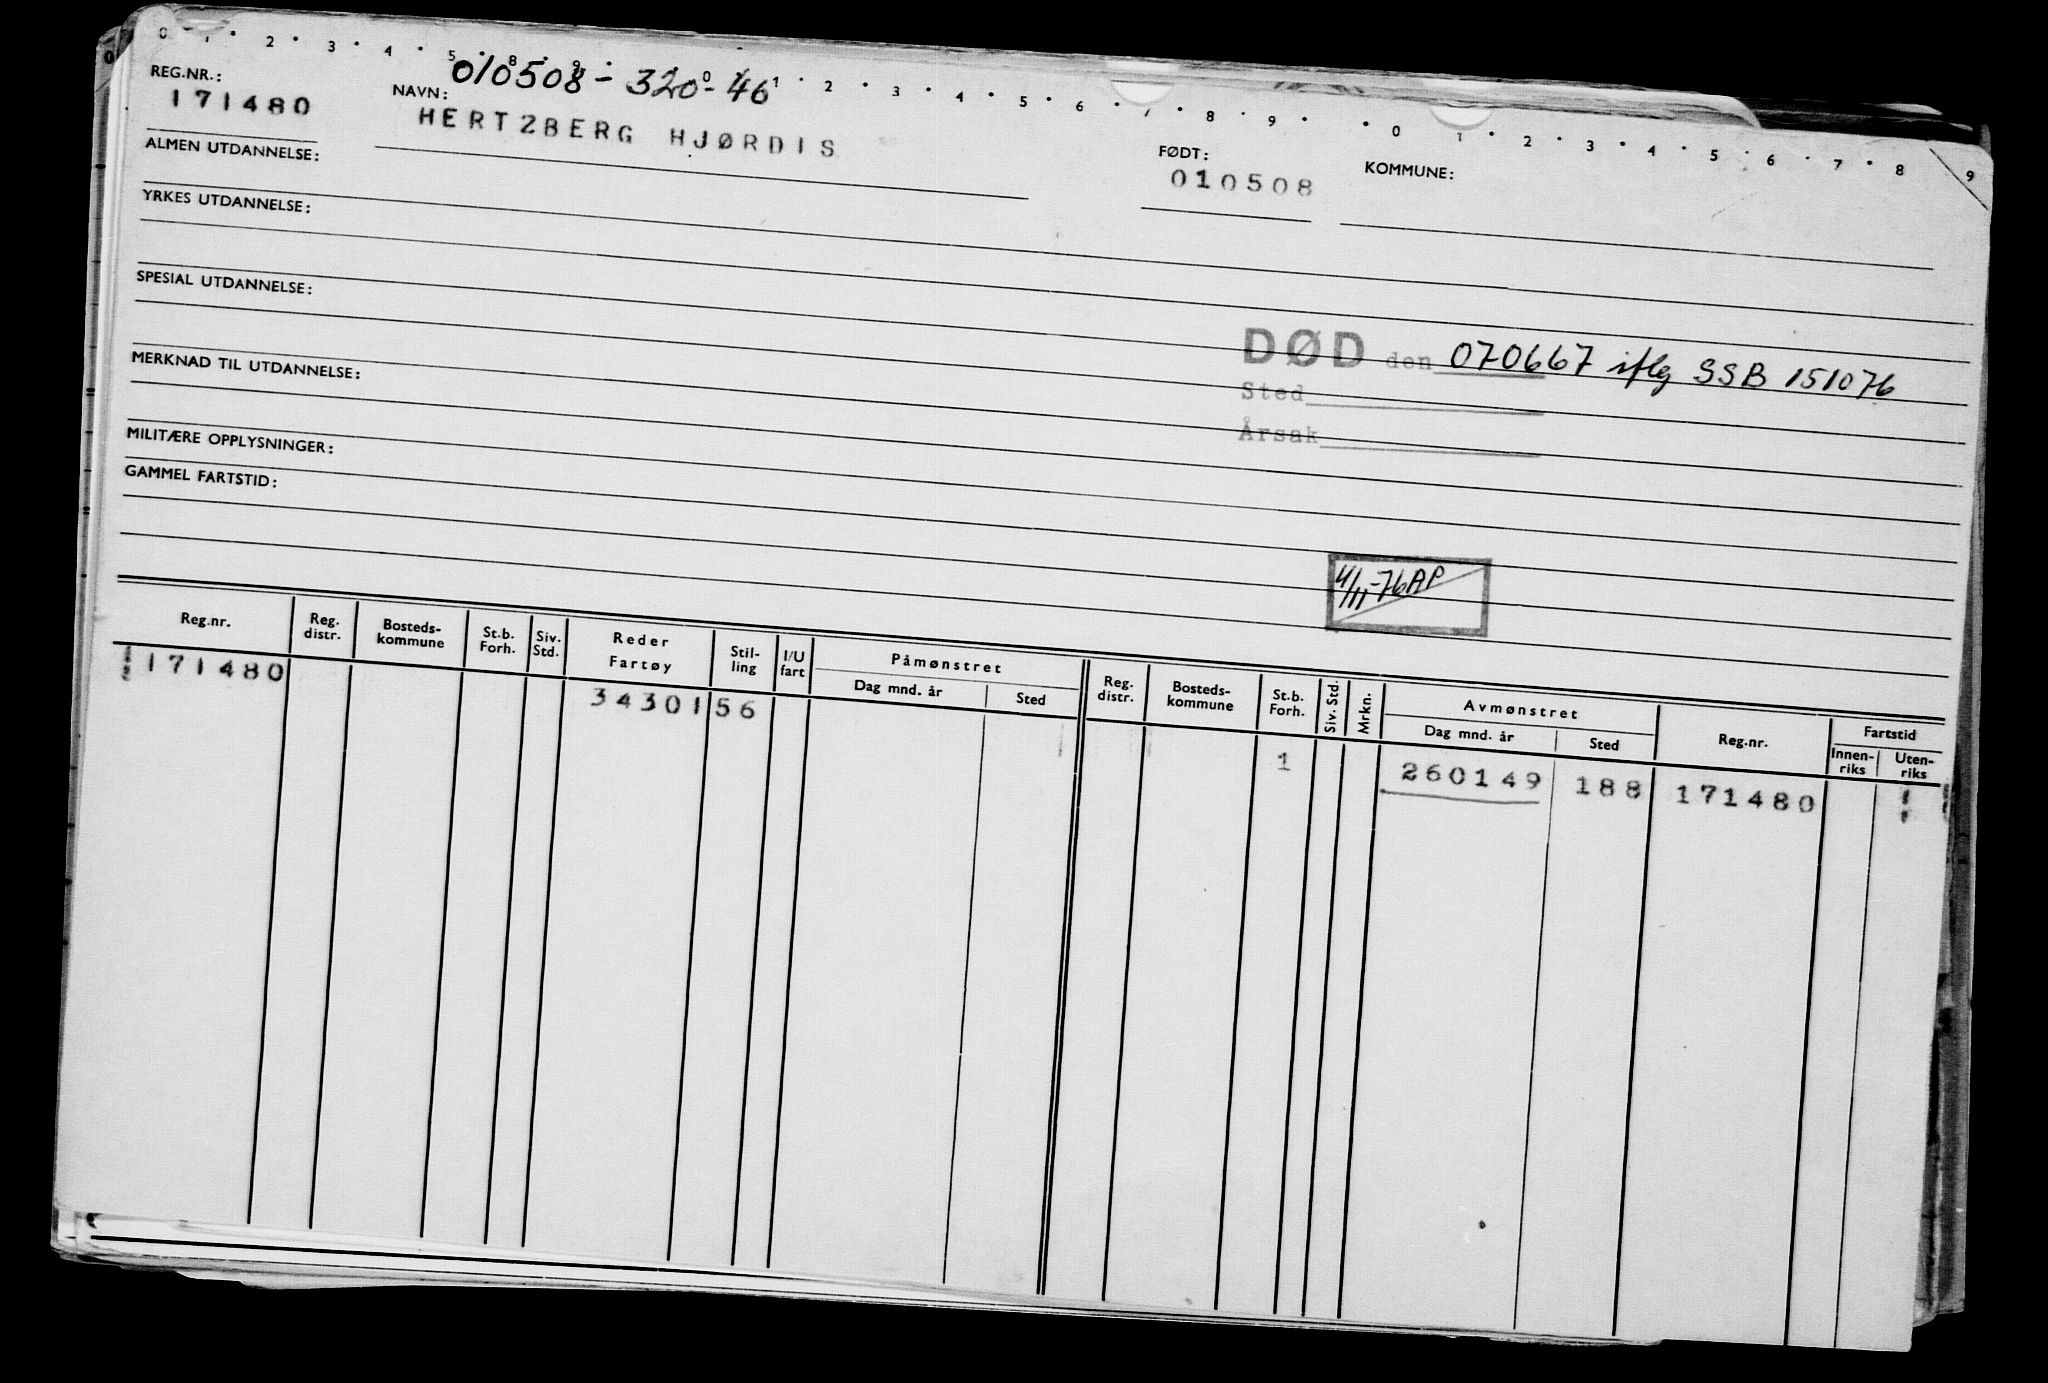 0 1 2 3 4 5 8 9 0 1 2 3 4 5 6 7 8 9 0 1 2 3 4 5 6 7 8 9
010508 - 320 - 46
REG.NR.: 171480 NAVN: HERTZBERG HJØRDIS FØDT: 010508 KOMMUNE:
ALMEN UTDANNELSE:
YRKES UTDANNELSE:
SPESIAL UTDANNELSE:
DØD den 070667 iflg SSB 151076
Sted
Årsak
MERKNAD TIL UTDANNELSE:
MILITÆRE OPPLYSNINGER:
GAMMEL FARTSTID:
4/11-76 AP
Reg.nr. Reg. distr. Bosteds-kommune St.b. Forh. Siv. Std. Reder Fartøy Stil-ling I/U fart Påmønstret Dag mnd. år Sted Reg. distr. Bosteds-kommune St.b. Forh. Siv. Std. Mrkn. Avmønstret Dag mnd. år Sted Reg.nr. Fartstid Innen-riks Uten-riks
171480 34301 56 1 260149 188 171480